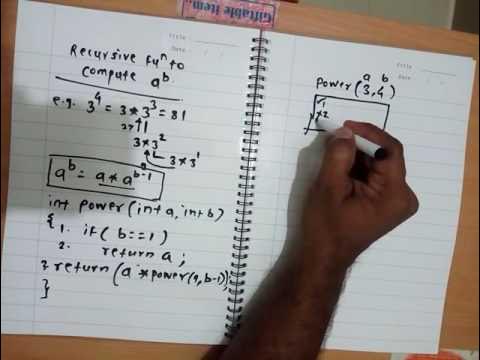 Giftable item..
Title
Date
Title
Date
Recursive funⁿ to
compute aᵇ
e.g. 3⁴ = 3 * 3³ = 81
27
3 * 3²
3 * 3¹
aᵇ = a * aᵇ⁻¹
int power(int a, int b)
{
1. if( b==1)
2. return a;
3. return(a *power(a, b-1));
}
a b
power(3,4)
1
x2